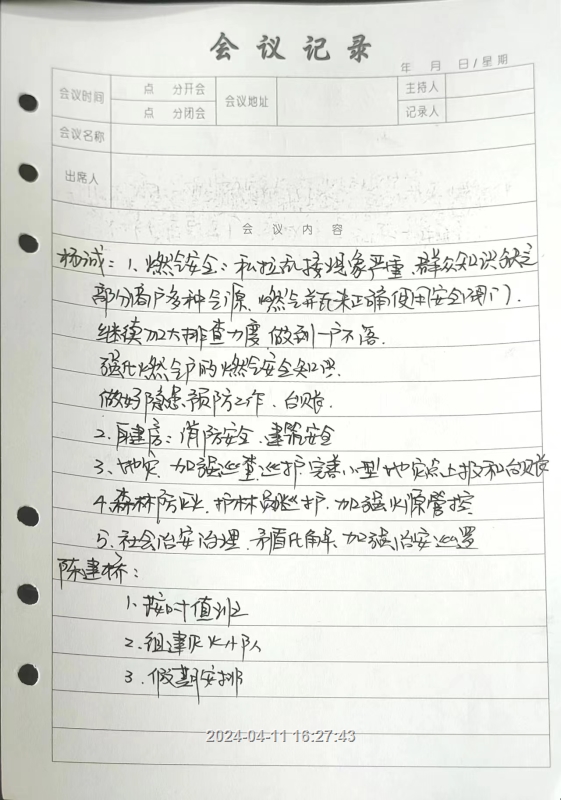 会议记录
年 月 日/星期
会议时间 点 分开会 会议地址 主持人
点 分闭会 记录人
会议名称
出席人
会议内容
杨诚：1、燃气安全：私拉乱接现象严重、群众知识缺乏
部分商户多种气源、燃气并未正确使用安全阀门.
继续加大排查力度,做到一户不落.
强化燃气户的燃气安全知识.
做好隐患预防工作、台账.
2、自建房：消防安全、建筑安全
3、地灾、加强巡查巡护,完善小型地灾点上报和台账
4、森林防火、护林员巡护、加强火源管控
5、社会治安治理、矛盾化解、加强治安巡逻
陈建桥：
1、按时值班
2、组建灭火小队
3、假期安排
2024-04-11 16:27:43